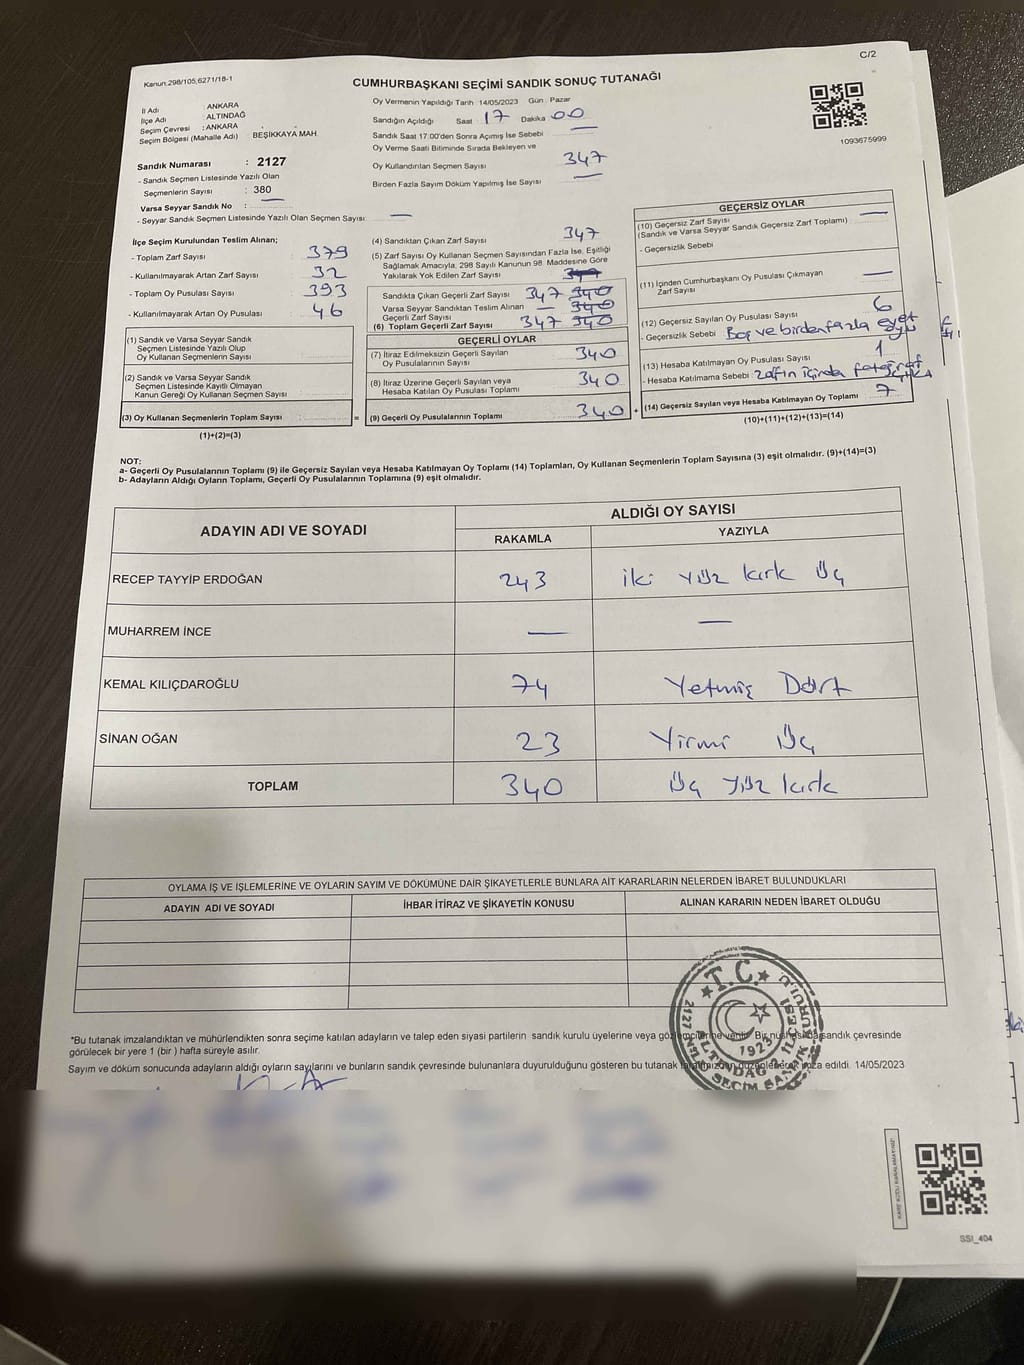 C/2
Kanun.298/105,6271/18-1
CUMHURBAŞKANI SEÇİMİ SANDIK SONUÇ TUTANAĞI
İl Adı : ANKARA
İlçe Adı : ALTINDAĞ
Seçim Çevresi : ANKARA
Seçim Bölgesi (Mahalle Adı) : BEŞİKKAYA MAH.
Sandık Numarası : 2127
- Sandık Seçmen Listesinde Yazılı Olan
Seçmenlerin Sayısı : 380
Varsa Seyyar Sandık No :
- Seyyar Sandık Seçmen Listesinde Yazılı Olan Seçmen Sayısı: —
Oy Vermenin Yapıldığı Tarih 14/05/2023 Gün : Pazar
Sandığın Açıldığı Saat 17 Dakika 00
Sandık Saat 17:00'den Sonra Açımış İse Sebebi —
Oy Verme Saati Bitiminde Sırada Bekleyen ve
Oy Kullandırılan Seçmen Sayısı 347
Birden Fazla Sayım Döküm Yapılmış İse Sayısı —
1093675999
İlçe Seçim Kurulundan Teslim Alınan;
- Toplam Zarf Sayısı 379
- Kullanılmayarak Artan Zarf Sayısı 32
- Toplam Oy Pusulası Sayısı 393
- Kullanılmayarak Artan Oy Pusulası 46
(1) Sandık ve Varsa Seyyar Sandık
Seçmen Listesinde Yazılı Olup
Oy Kullanan Seçmenlerin Sayısı
(2) Sandık ve Varsa Seyyar Sandık
Seçmen Listesinde Kayıtlı Olmayan
Kanun Gereği Oy Kullanan Seçmen Sayısı
(3) Oy Kullanan Seçmenlerin Toplam Sayısı =
(1)+(2)=(3)
(4) Sandıktan Çıkan Zarf Sayısı 347
(5) Zarf Sayısı Oy Kullanan Seçmen Sayısından Fazla İse, Eşitliği
Sağlamak Amacıyla; 298 Sayılı Kanunun 98. Maddesine Göre
Yakılarak Yok Edilen Zarf Sayısı
Sandıkta Çıkan Geçerli Zarf Sayısı 347 340
Varsa Seyyar Sandıktan Teslim Alınan
Geçerli Zarf Sayısı — 340
(6) Toplam Geçerli Zarf Sayısı 347 340
GEÇERLİ OYLAR
(7) İtiraz Edilmeksizin Geçerli Sayılan
Oy Pusulalarının Sayısı 340
(8) İtiraz Üzerine Geçerli Sayılan veya
Hesaba Katılan Oy Pusulası Toplamı 340
(9) Geçerli Oy Pusulalarının Toplamı 340 +
GEÇERSİZ OYLAR
(10) Geçersiz Zarf Sayısı —
(Sandık ve Varsa Seyyar Sandık Geçersiz Zarf Toplamı)
- Geçersizlik Sebebi
(11) İçinden Cumhurbaşkanı Oy Pusulası Çıkmayan
Zarf Sayısı —
(12) Geçersiz Sayılan Oy Pusulası Sayısı 6
- Geçersizlik Sebebi Boş ve birden fazla evet
(13) Hesaba Katılmayan Oy Pusulası Sayısı 1
- Hesaba Katılmama Sebebi Zarfın içinda fotoğraf çıktı
(14) Geçersiz Sayılan veya Hesaba Katılmayan Oy Toplamı 7
(10)+(11)+(12)+(13)=(14)
NOT:
a- Geçerli Oy Pusulalarının Toplamı (9) ile Geçersiz Sayılan veya Hesaba Katılmayan Oy Toplamı (14) Toplamları, Oy Kullanan Seçmenlerin Toplam Sayısına (3) eşit olmalıdır. (9)+(14)=(3)
b- Adayların Aldığı Oyların Toplamı, Geçerli Oy Pusulalarının Toplamına (9) eşit olmalıdır.
ADAYIN ADI VE SOYADI ALDIĞI OY SAYISI
RAKAMLA YAZIYLA
RECEP TAYYİP ERDOĞAN 243 iki yüz kırk üç
MUHARREM İNCE — —
KEMAL KILIÇDAROĞLU 74 Yetmiş Dört
SİNAN OĞAN 23 Yirmi Üç
TOPLAM 340 üç yüz kırk
OYLAMA İŞ VE İŞLEMLERİNE VE OYLARIN SAYIM VE DÖKÜMÜNE DAİR ŞİKAYETLERLE BUNLARA AİT KARARLARIN NELERDEN İBARET BULUNDUKLARI
ADAYIN ADI VE SOYADI İHBAR İTİRAZ VE ŞİKAYETİN KONUSU ALINAN KARARIN NEDEN İBARET OLDUĞU
T.C.
1923
*Bu tutanak imzalandıktan ve mühürlendikten sonra seçime katılan adayların ve talep eden siyasi partilerin sandık kurulu üyelerine veya gözlemcilerine verilir. Bir nüshası da sandık çevresinde
görülecek bir yere 1 (bir ) hafta süreyle asılır.
Sayım ve döküm sonucunda adayların aldığı oyların sayılarını ve bunların sandık çevresinde bulunanlara duyurulduğunu gösteren bu tutanak tarafımızdan düzenlenerek imza edildi. 14/05/2023
KARE KODU KARALAMAYINIZ!
SSI_404